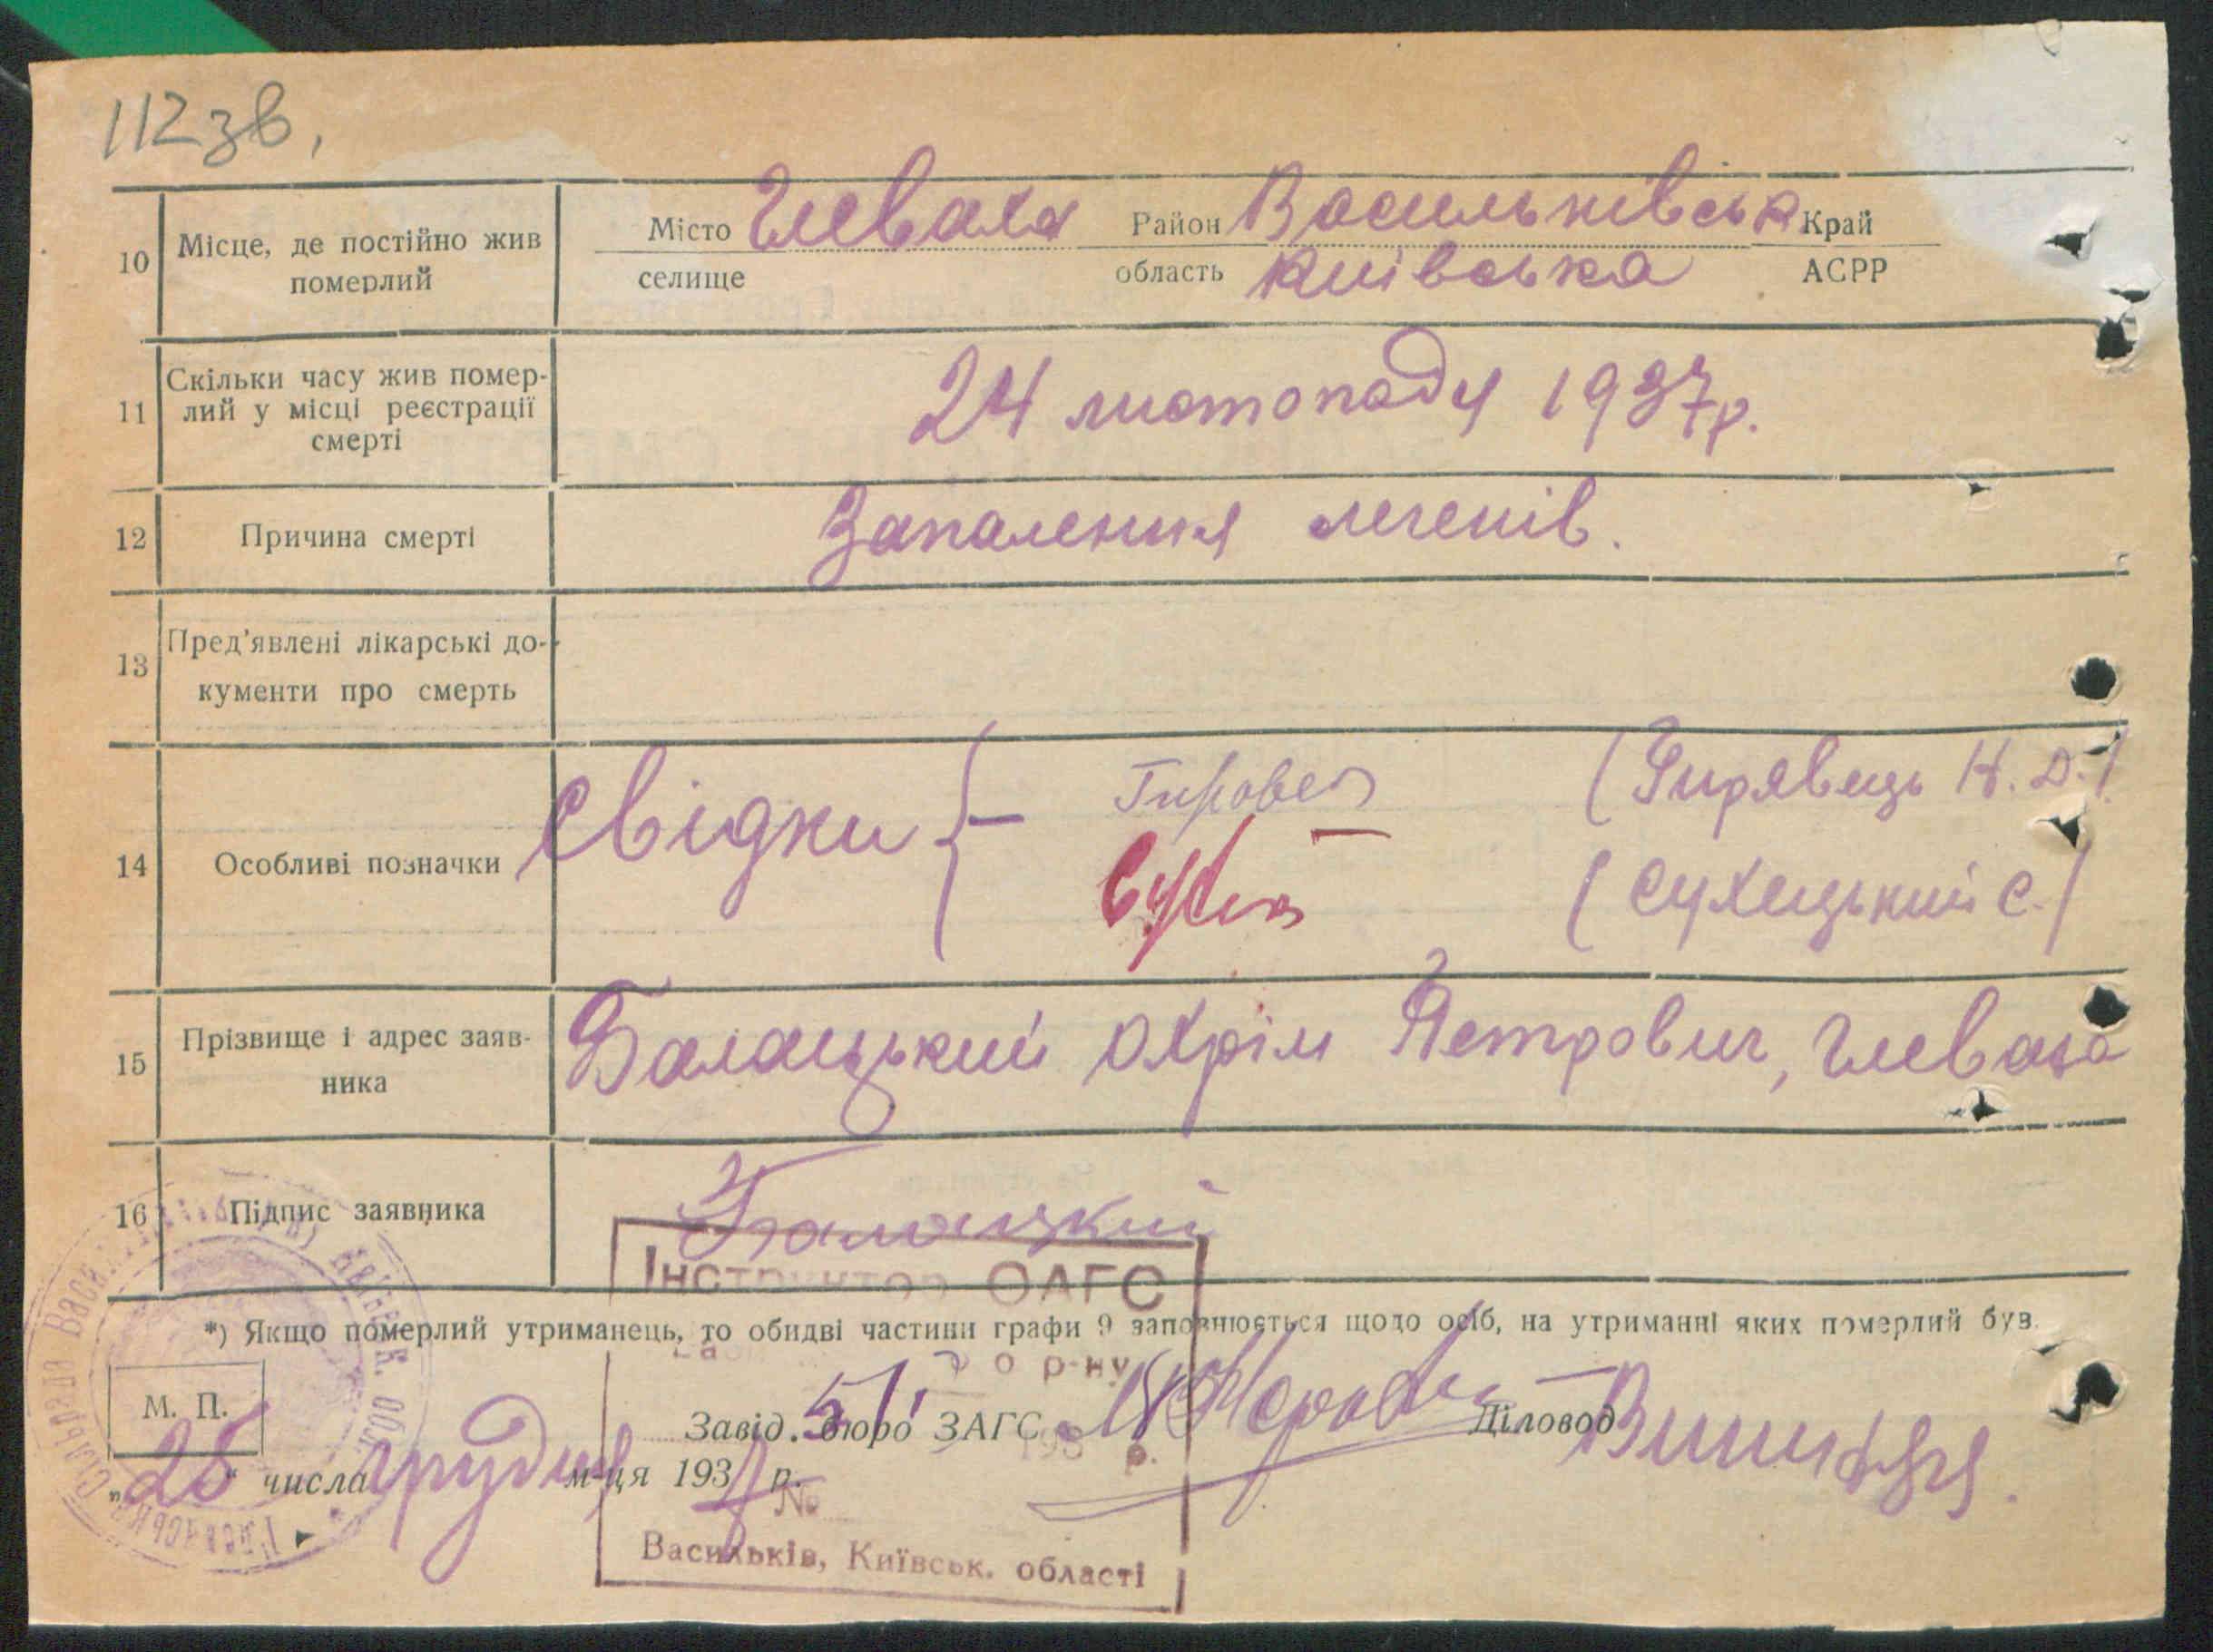 112зв,
10 Місце, де постійно жив померлий
Місто Глеваха Район Васильківськ Край
селище область Київська АСРР
11 Скільки часу жив помер-
лий у місці реєстрації
смерті
24 листопаду 1937р.
12 Причина смерті Запалення легенів.
13 Пред'явлені лікарські до-
кументи про смерть
14 Особливі позначки Свідки { – (Гирявець Н. Д.)
(Сухецький С.)
15 Прізвище і адрес заяв-
ника
Балацький Охрім Петрович, Глеваха
16 Підпис заявника Балацкий
Інструктор ОАГС
*) Якщо померлий утриманець, то обидві частини графи 9 заповнюється щодо осіб, на утриманні яких померлий був.
р-ну
М. П.
Завід. бюро ЗАГС Діловод
„28“ числа грудня м-ця 1937 р.
193 р.
№
Васильків, Київськ. області